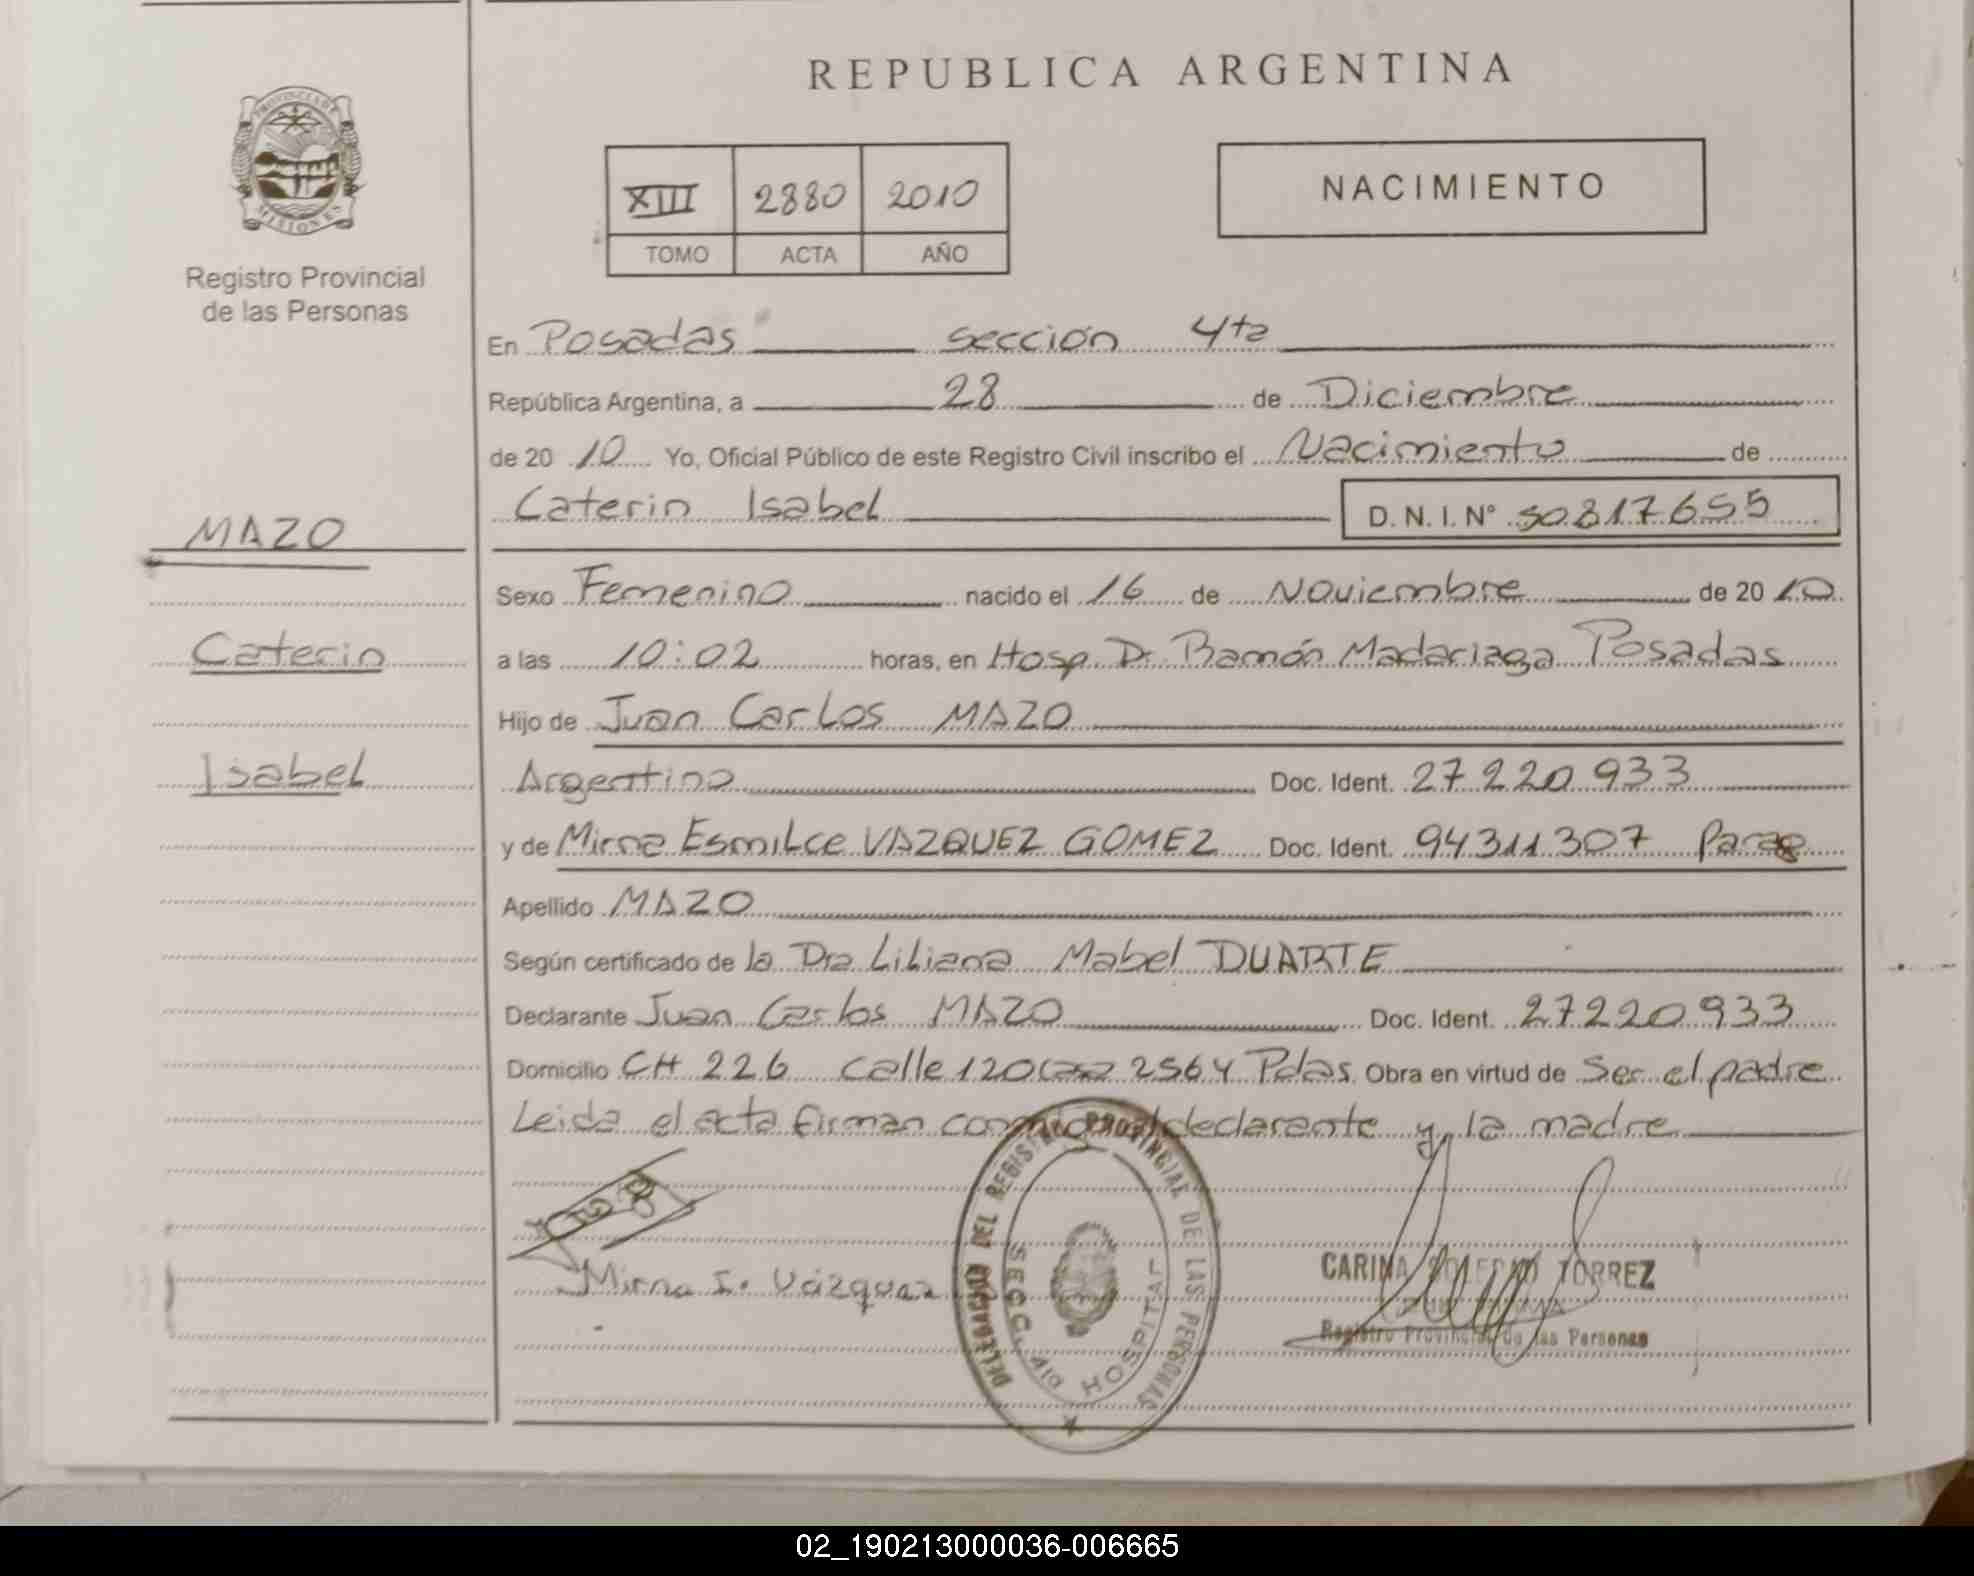 REPUBLICA ARGENTINA
PROVINCIA DE
MISIONES
Registro Provincial
de las Personas
XIII 2880 2010
TOMO ACTA AÑO
NACIMIENTO
En Posadas sección 4ta
República Argentina, a 28 de Diciembre
de 2010 Yo, Oficial Público de este Registro Civil inscribo el Nacimiento de
Caterin Isabel D.N.I.N° 50.817.655
MAZO
Caterin
Isabel
Sexo Femenino nacido el 16 de Noviembre de 2010
a las 10:02 horas, en Hosp. Dr. Ramón Madariaga Posadas
Hijo de Juan Carlos MAZO
Argentino Doc. Ident. 27220933
y de Mirna Esmilce VAZQUEZ GOMEZ Doc. Ident. 94311307 Parag
Apellido MAZO
Según certificado de la Dra Liliana Mabel DUARTE
Declarante Juan Carlos MAZO Doc. Ident. 27220933
Domicilio CH 226 calle 120 casa 2564 Pdas. Obra en virtud de Ser el padre
Leida el acta firman conmigo el declarante y la madre
Mirna E. Vázquez
DELEGACION DEL REGISTRO PROVINCIAL DE LAS PERSONAS
SECC. 4ta HOSPITAL
CARINA SOLEDAD TORREZ
Registro Provincial de las Personas
02_190213000036-006665